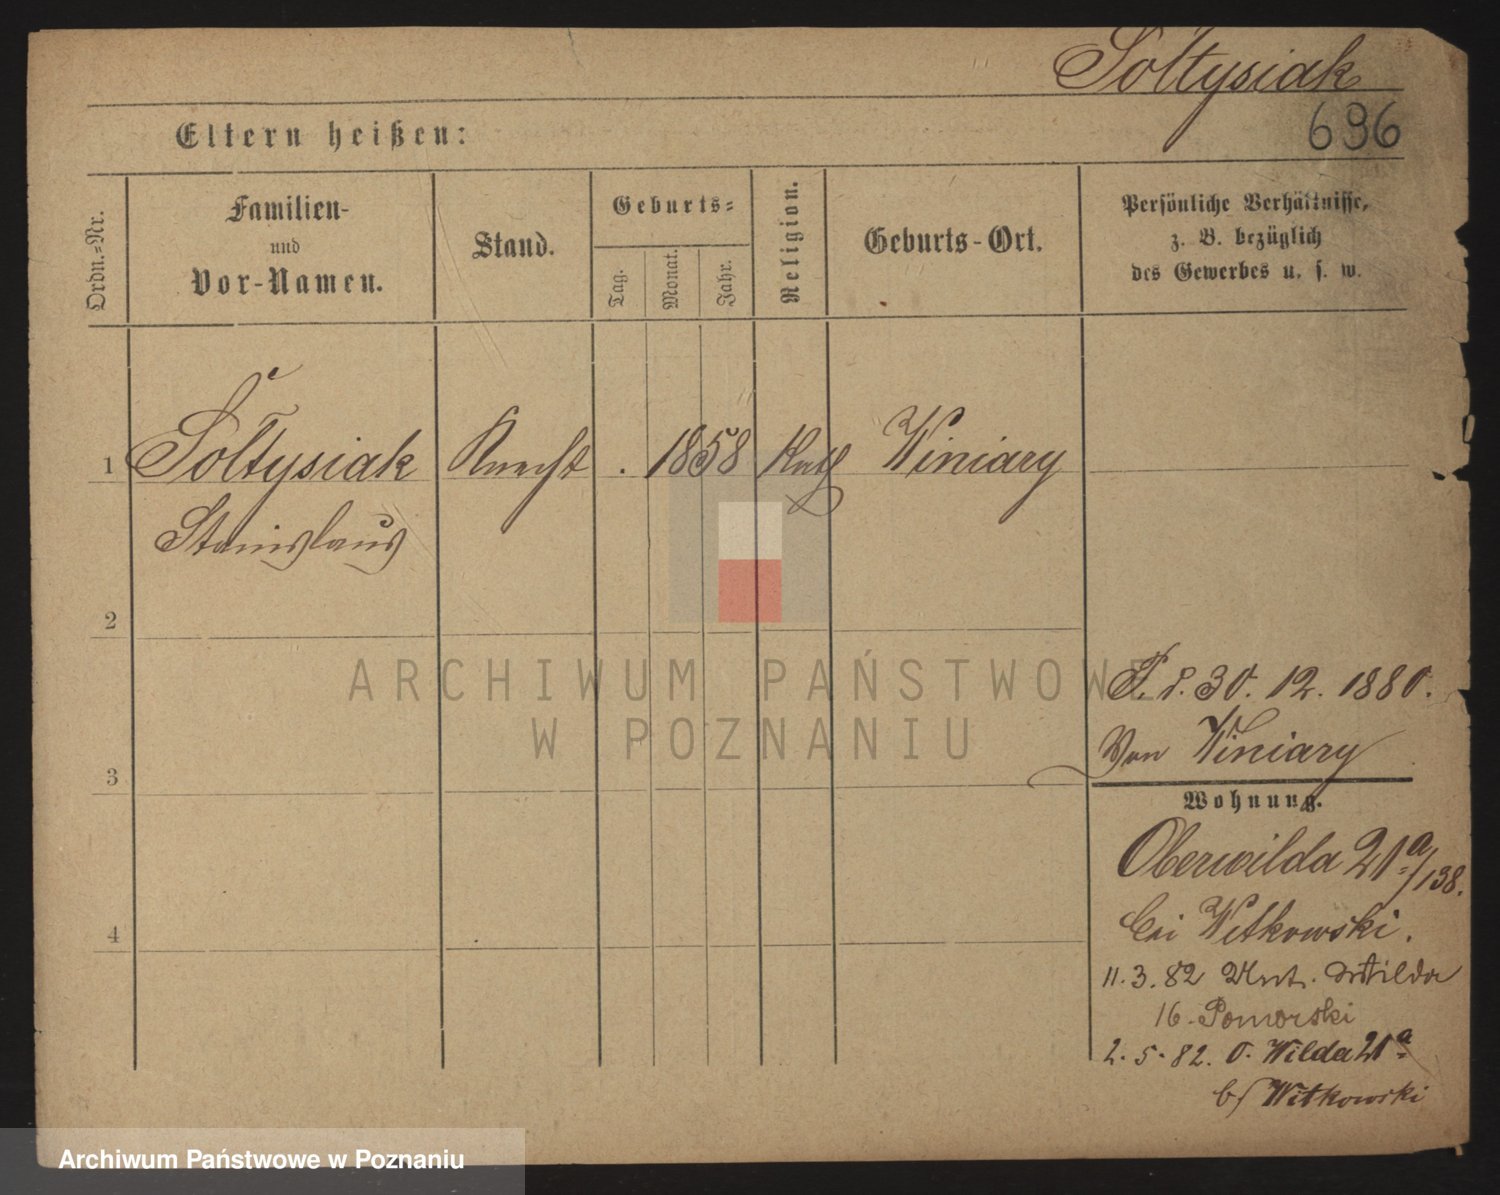 Sołtysiak
696
Eltern heißen:
Ordn.-Nr.
Familien-
und
Vor-Namen.
Stand.
Geburts-
Tag.
Monat.
Jahr.
Religion.
Geburts-Ort.
Persönliche Verhältnisse,
z. B. bezüglich
des Gewerbes u. s. w.
1 Sołtysiak Knecht . 1858 Kath Winiary
Stanislaus
2
3
4
P. d. 30. 12. 1880.
Von Winiary
Wohnung.
Oberwilda 21a/138.
bei Witkowski.
11. 3. 82 Unt. Wilda
16. Pomorski
2. 5. 82. O. Wilda 21a
b/ Witkowski
ARCHIWUM PAŃSTWOWE
W POZNANIU
Archiwum Państwowe w Poznaniu